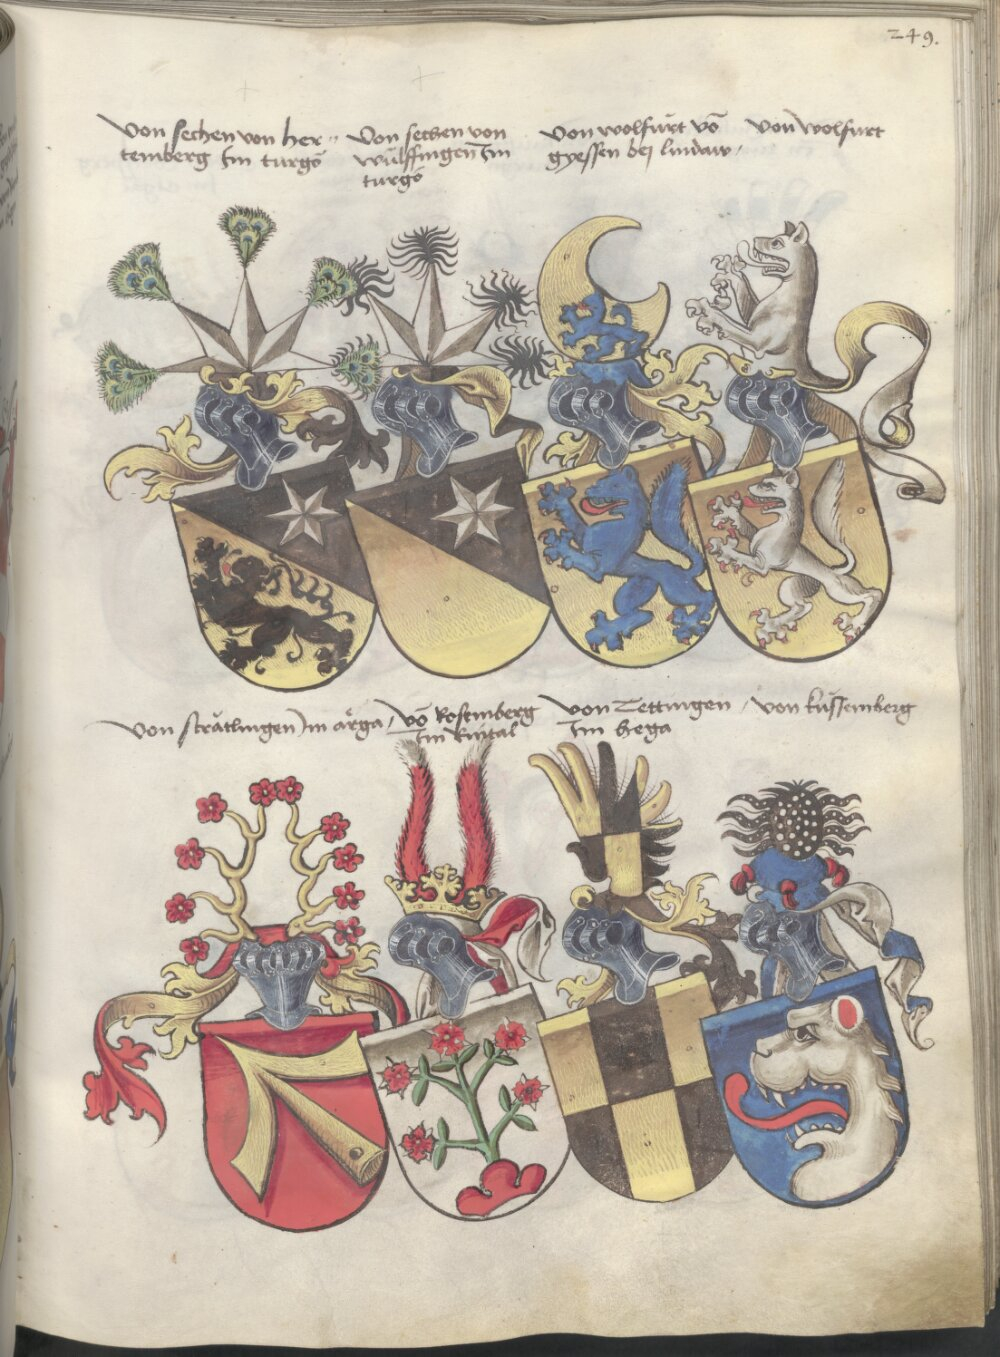 249.
Von sechen von her„
temberg Im turgö
Von sechen von
wülffingen Im
turgö
Von wolfurt vō
gyessen bej lindaw
Von wolfurt
Von strätlingen Im ärga
Vō Rosemberg
Im Rintal
Von Tettingen
Im hega
Von küssemberg